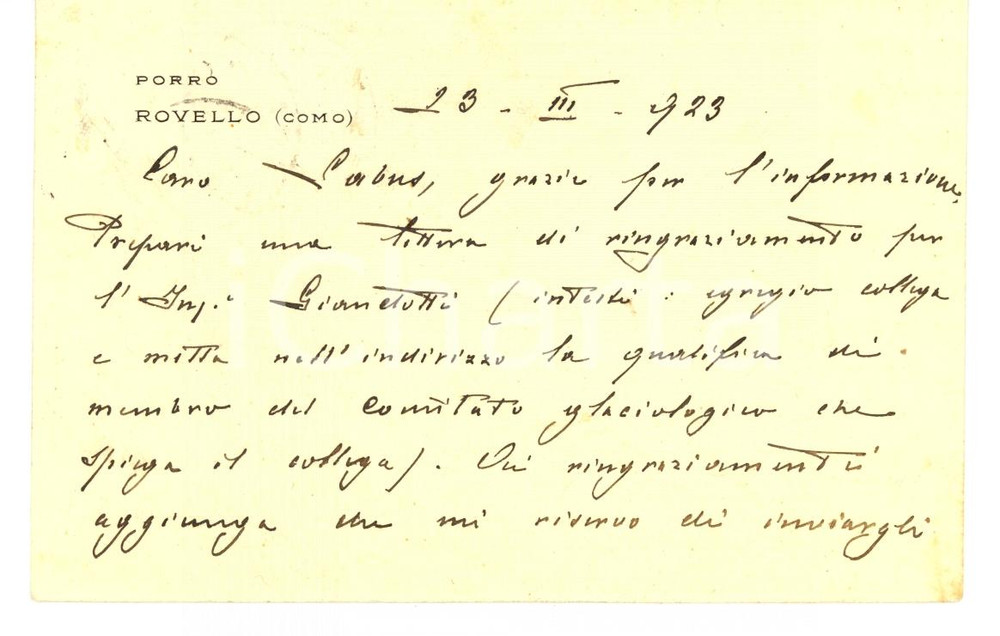 PORRO
ROVELLO (COMO) 23 - III - 923
Caro Labus, grazie per l'informazione.
Prepari una lettera di ringraziamento per
l'Ing.e Giandotti (intesti: egregio collega
e metta nell'indirizzo la qualifica di
membro del Comitato glaciologico che
spiega il collega). Ai ringraziamenti
aggiunga che mi riservo di inviargli
iCharta